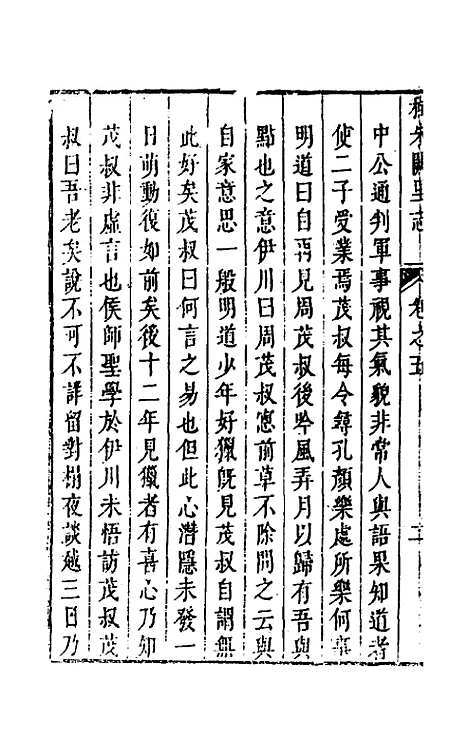 程朱闕里志 卷之五
中公通判軍事視其氣貌非常人與語果知道者
使二子受業焉茂叔每令尋孔顏樂處所樂何事
明道曰自再見周茂叔後吟風弄月以歸有吾與
點也之意伊川曰周茂叔窓前草不除問之云與
自家意思一般明道少年好獵旣見茂叔自謂無
此好矣茂叔曰何言之易也但此心潛隱未發一
日萌動復如前矣後十二年見獵者有喜心乃知
茂叔非虛言也侯師聖學於伊川未悟訪茂叔茂
叔曰吾老矣說不可不詳留對榻夜談越三日乃